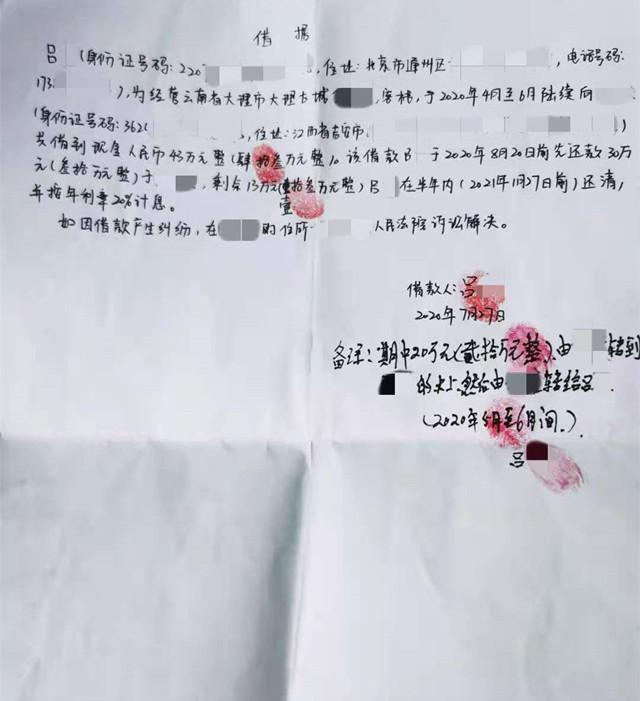 借 据
吕 (身份证号码:220 ,住址:北京市通州区 ,电话号码:
173 ),为经营云南省大理市大理古城 客栈,于2020年4月至6月陆续向
(身份证号码:362( ,住址:江西省吉安市.
共借到现金人民币43万元整(肆拾叁万元整),该借款 于2020年8月20日前先还款30万
元(叁拾万元整)于 ,剩余13万(壹拾叁万元整)吕 在半年内(2021年1月27日前)还清,
并按年利率20%计息。
壹
如因借款产生纠纷,在 的住所 人民法院诉讼解决。
借款人:吕
2020年7月27日
备注:其中20万元(贰拾万元整)由 转到
的卡上然后由 转给吕
(2020年5月至6月间.)
吕